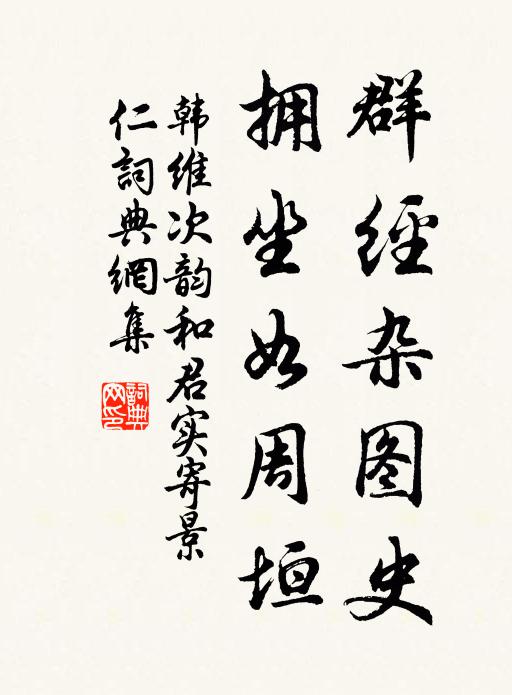 群經杂图史
拥坐如周垣
韩维次韵和君实寄景
仁詞典網集
詞典網印